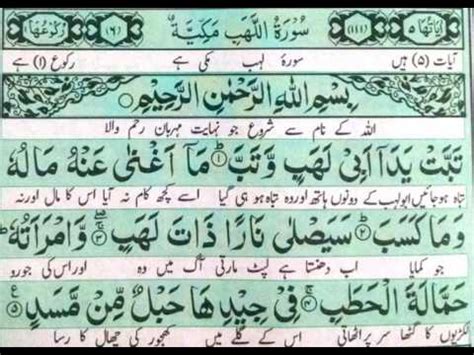 اٰيَاتُهَا ٥ (١١١) سُوْرَةُ اللَّهَبِ مَكِّيَّةٌ (٦) رُكُوْعُهَا ١
آیات (۵) ہیں سورۂ لہب مکی ہے رکوع (۱) ہے
بِسْمِ اللهِ الرَّحْمٰنِ الرَّحِيْمِ
اللہ کے نام سے شروع جو نہایت مہربان رحم والا
تَبَّتْ يَدَآ اَبِيْ لَهَبٍ وَّتَبَّ ؕ﴿١﴾ مَآ اَغْنٰى عَنْهُ مَالُهٗ
تباہ ہو جائیں ابولہب کے دونوں ہاتھ اور وہ تباہ ہو ہی گیا اسے کچھ کام نہ آیا اس کا مال اور نہ
وَمَا كَسَبَ ؕ﴿٢﴾ سَيَصْلٰى نَارًا ذَاتَ لَهَبٍ ۚۖ﴿٣﴾ وَّامْرَاَتُهٗ ؕ
جو کمایا اب دھنستا ہے لپٹ مارتی آگ میں وہ اور اس کی جورو
حَمَّالَةَ الْحَطَبِ ۚ﴿٤﴾ فِيْ جِيْدِهَا حَبْلٌ مِّنْ مَّسَدٍ ﴿٥﴾ ع
لکڑیوں کا گٹھا سر پر اٹھاتی اس کے گلے میں کھجور کی چھال کا رسا